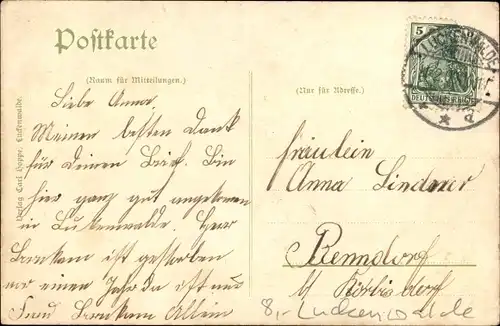 Postkarte
(Raum für Mitteilungen.)
Liebe Anna.
Meinen besten Dank
für Deinen Brief. Bin
hier ganz gut angekommen
in Luckenwalde. Herr
ist gestorben
vor einen Jahr da ist nur
Frau allein
Verlag Carl Hoppe, Luckenwalde.
(Nur für Adresse.)
5
DEUTSCHES REICH
LUCKENWALDE
Fräulein
Anna Lindner
Benndorf
b/
8,- Luckenwalde